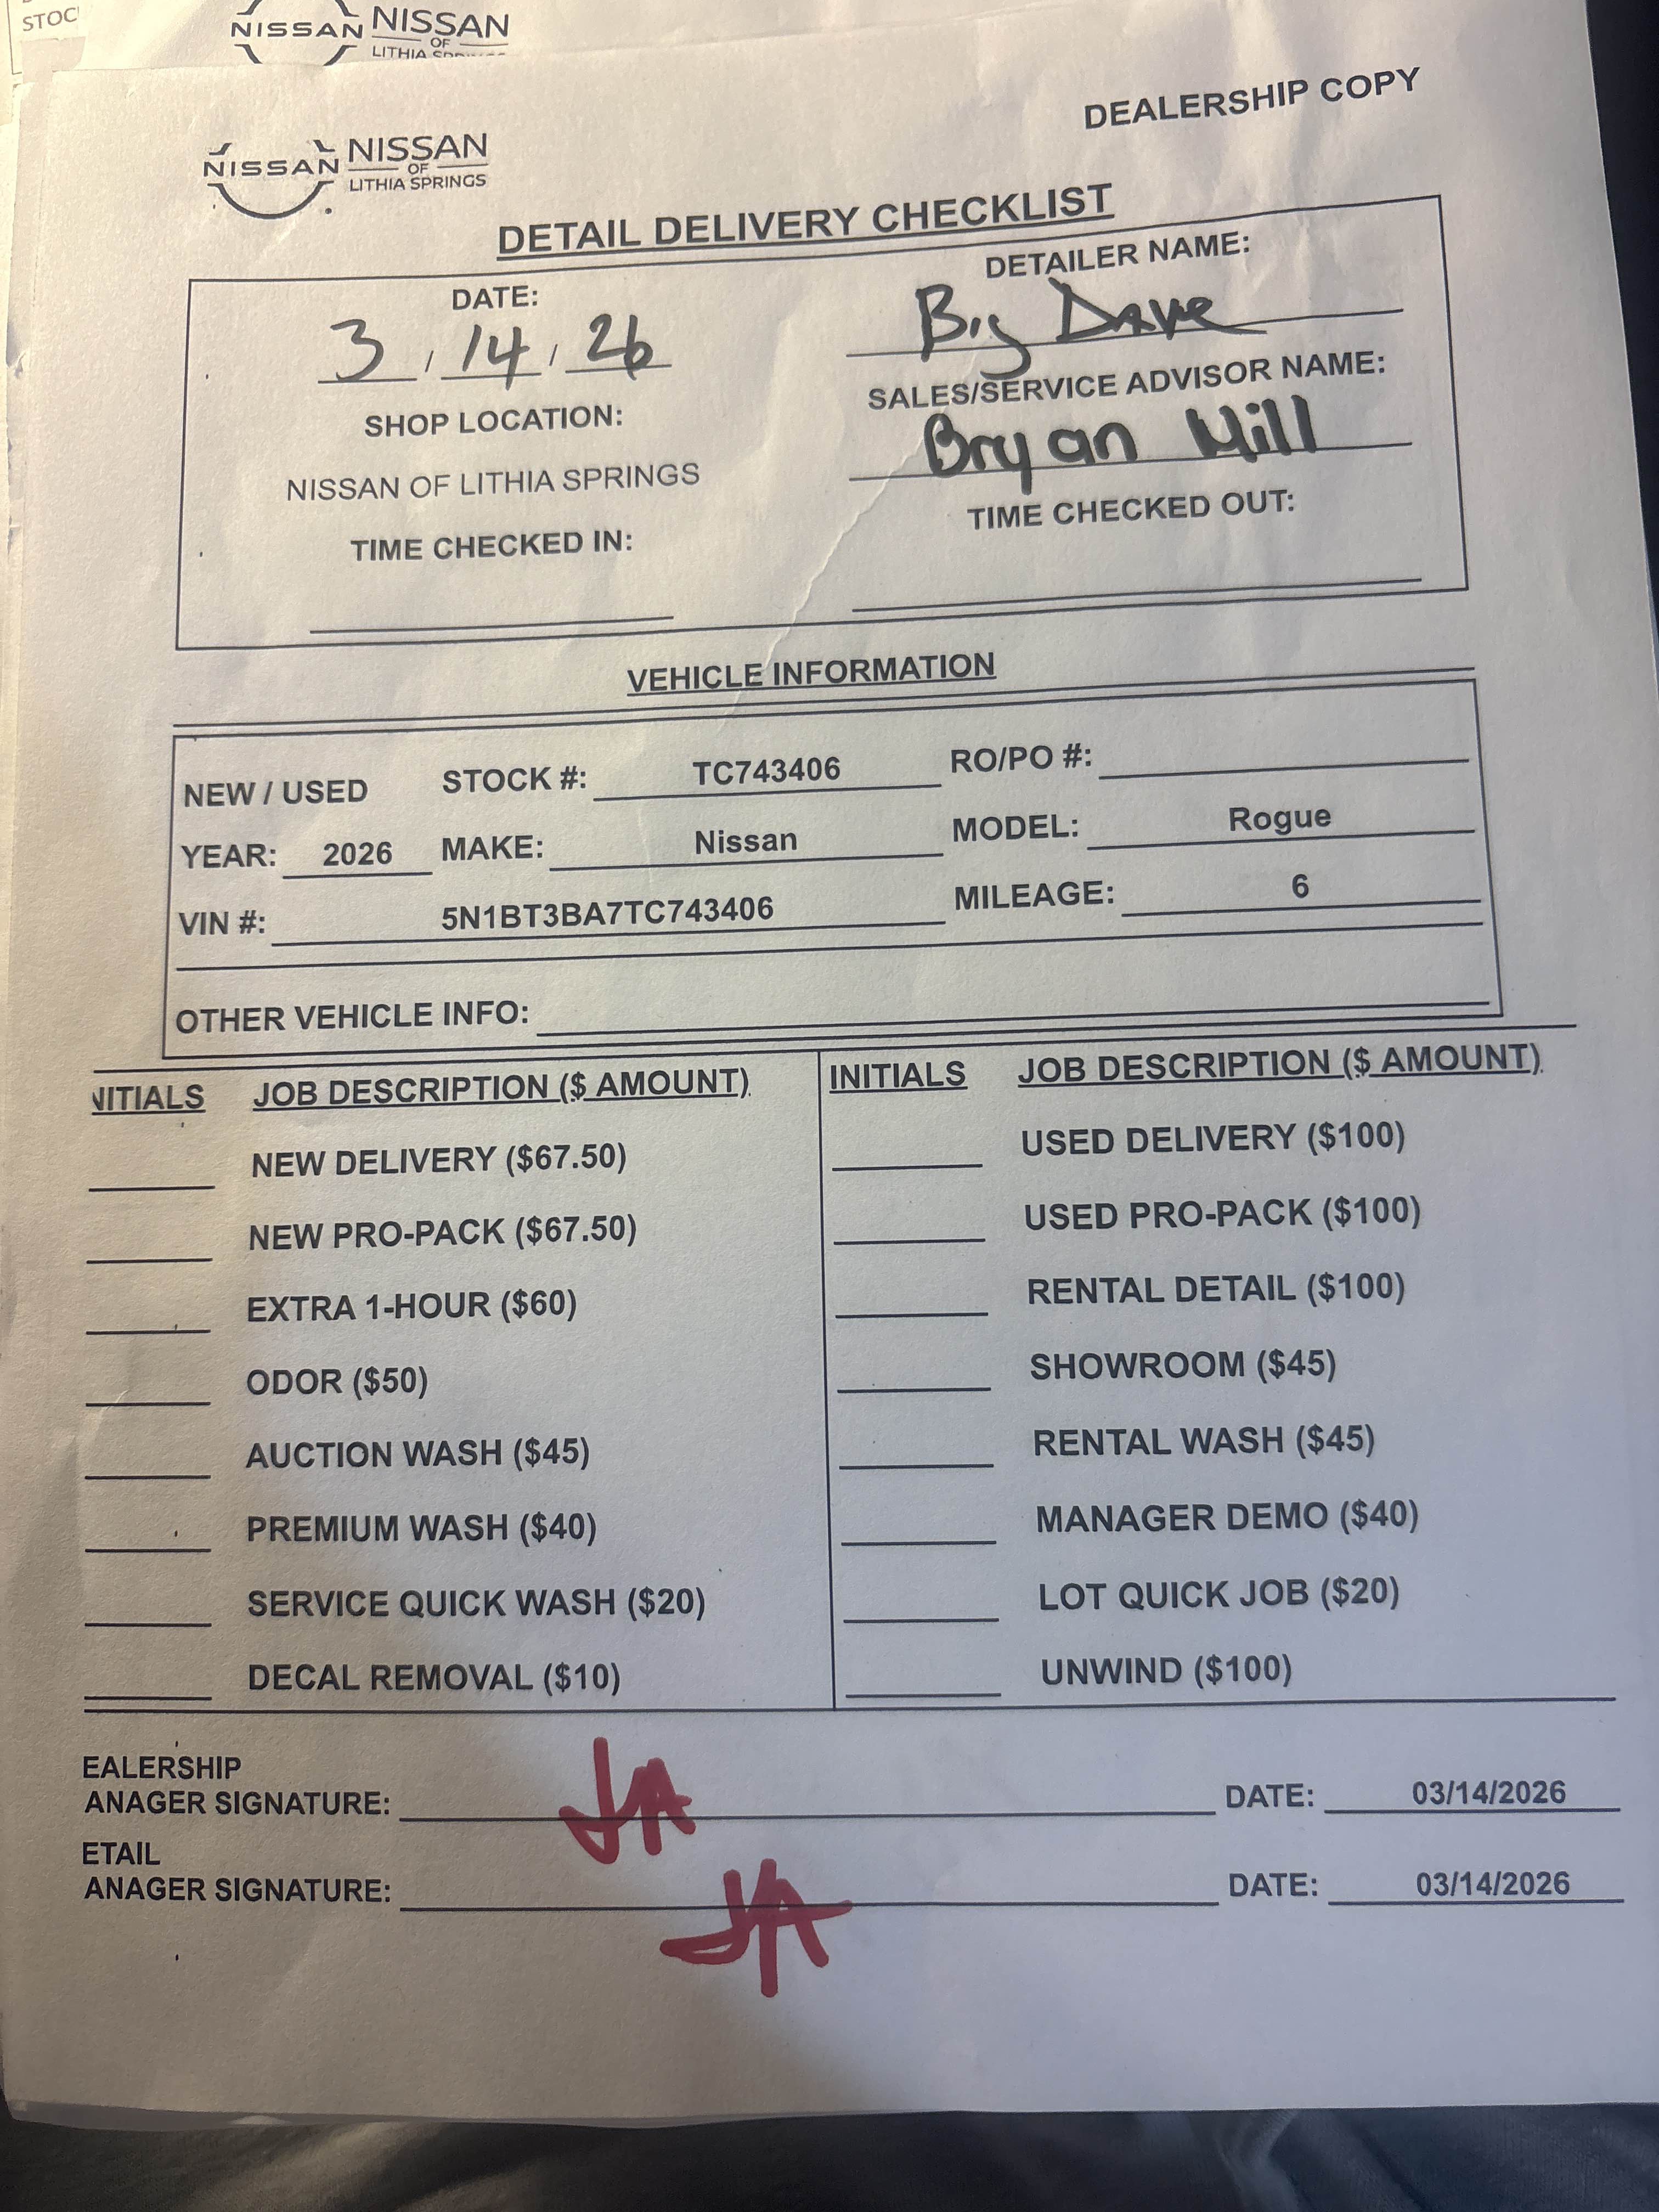 STOC
NISSAN NISSAN
OF
LITHIA
DEALERSHIP COPY
NISSAN NISSAN
OF
LITHIA SPRINGS
DETAIL DELIVERY CHECKLIST
DATE:
3 / 14 / 26
DETAILER NAME:
Big Dave
SHOP LOCATION:
NISSAN OF LITHIA SPRINGS
SALES/SERVICE ADVISOR NAME:
Bryan Hill
TIME CHECKED IN:
TIME CHECKED OUT:
VEHICLE INFORMATION
NEW / USED STOCK #: TC743406 RO/PO #:
YEAR: 2026 MAKE: Nissan MODEL: Rogue
VIN #: 5N1BT3BA7TC743406 MILEAGE: 6
OTHER VEHICLE INFO:
NITIALS JOB DESCRIPTION ($ AMOUNT) INITIALS JOB DESCRIPTION ($ AMOUNT)
NEW DELIVERY ($67.50) USED DELIVERY ($100)
NEW PRO-PACK ($67.50) USED PRO-PACK ($100)
EXTRA 1-HOUR ($60) RENTAL DETAIL ($100)
ODOR ($50) SHOWROOM ($45)
AUCTION WASH ($45) RENTAL WASH ($45)
PREMIUM WASH ($40) MANAGER DEMO ($40)
SERVICE QUICK WASH ($20) LOT QUICK JOB ($20)
DECAL REMOVAL ($10) UNWIND ($100)
EALERSHIP
ANAGER SIGNATURE: JA DATE: 03/14/2026
ETAIL
ANAGER SIGNATURE: JA DATE: 03/14/2026